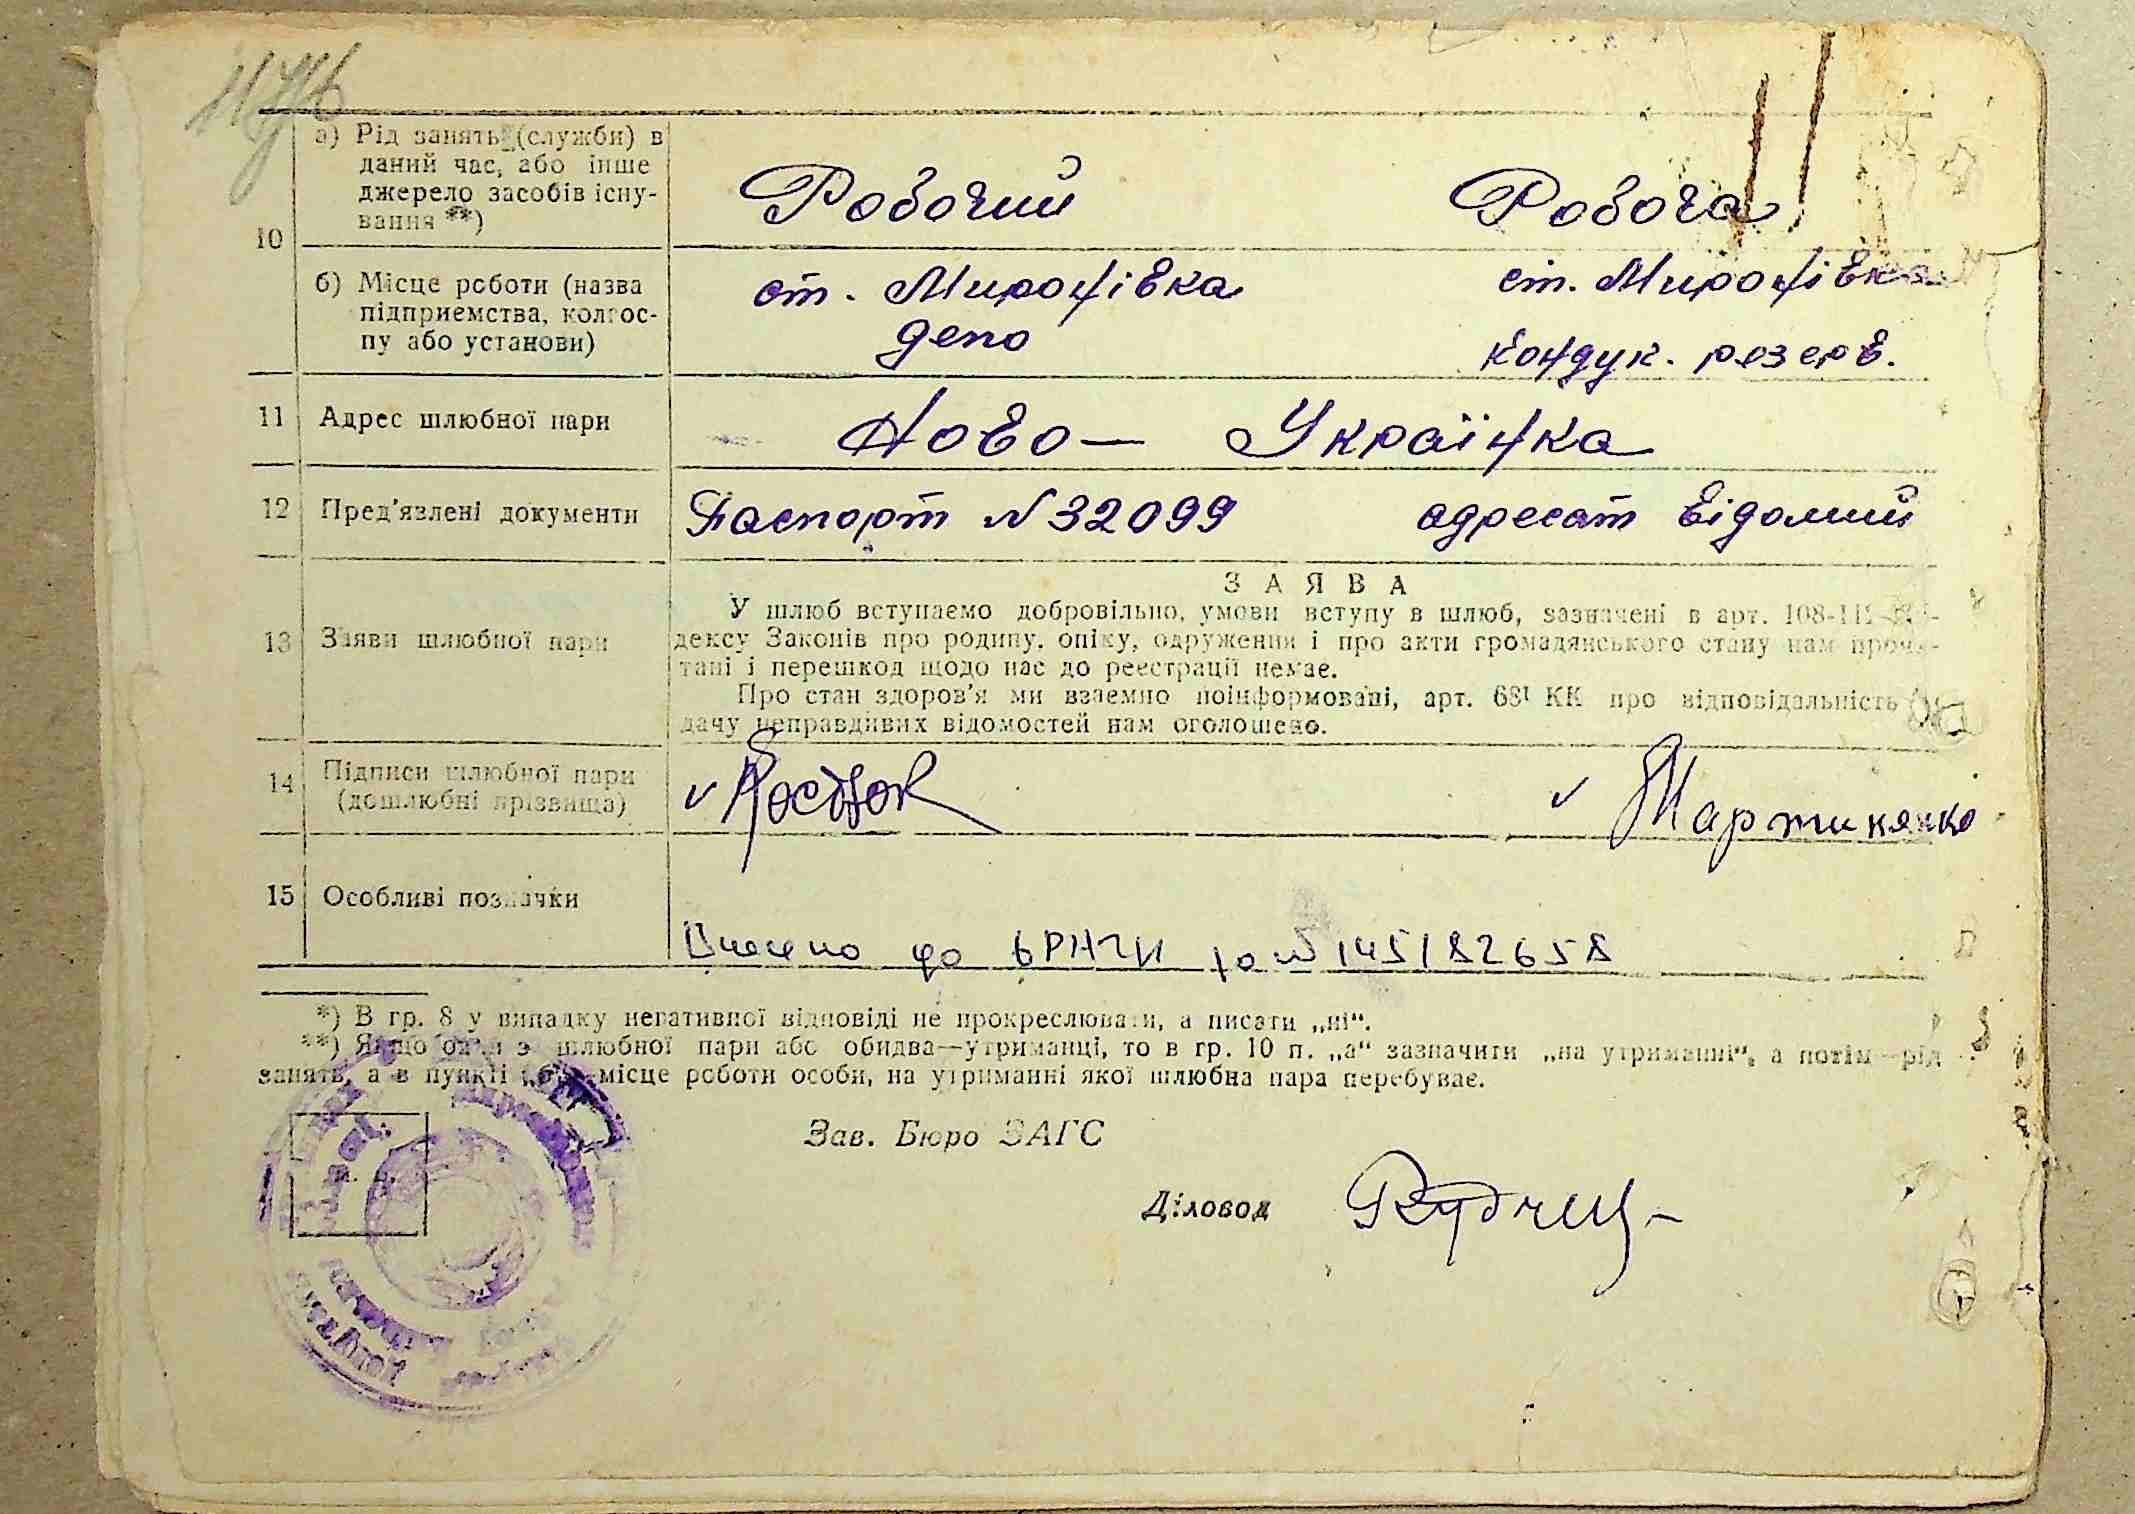 10
а) Рід занять (служби) в
даний час, або інше
джерело засобів існу-
вання **)
Робочий Робоча
б) Місце роботи (назва
підприємства, колгос-
пу або установи)
ст. Миронівка ст. Миронівка
депо кондук. резерв.
11 Адрес шлюбної пари Ново- Українка
12 Пред'явлені документи Паспорт №32099 адресат відомий
ЗАЯВА
13 Заяви шлюбної пари
У шлюб вступаємо добровільно, умови вступу в шлюб, зазначені в арт. 108-112 Ко-
дексу Законів про родину, опіку, одруження і про акти громадянського стану нам прочи-
тані і перешкод щодо нас до реєстрації немає.
Про стан здоров'я ми взаємно поінформовані, арт. 68¹ КК про відповідальність
дачу неправдивих відомостей нам оголошено.
14 Підписи шлюбної пари
(дошлюбні прізвища)
Мартиненко
15 Особливі позначки
Внесено до 145182658
*) В гр. 8 у випадку негативної відповіді не прокреслювати, а писати „ні“.
**) Якщо один з шлюбної пари або обидва—утриманці, то в гр. 10 п. „а“ зазначити „на утриманні“, а потім—рід
занять, а в пункті „б“ місце роботи особи, на утриманні якої шлюбна пара перебуває.
М. П.
Зав. Бюро ЗАГС
Діловод